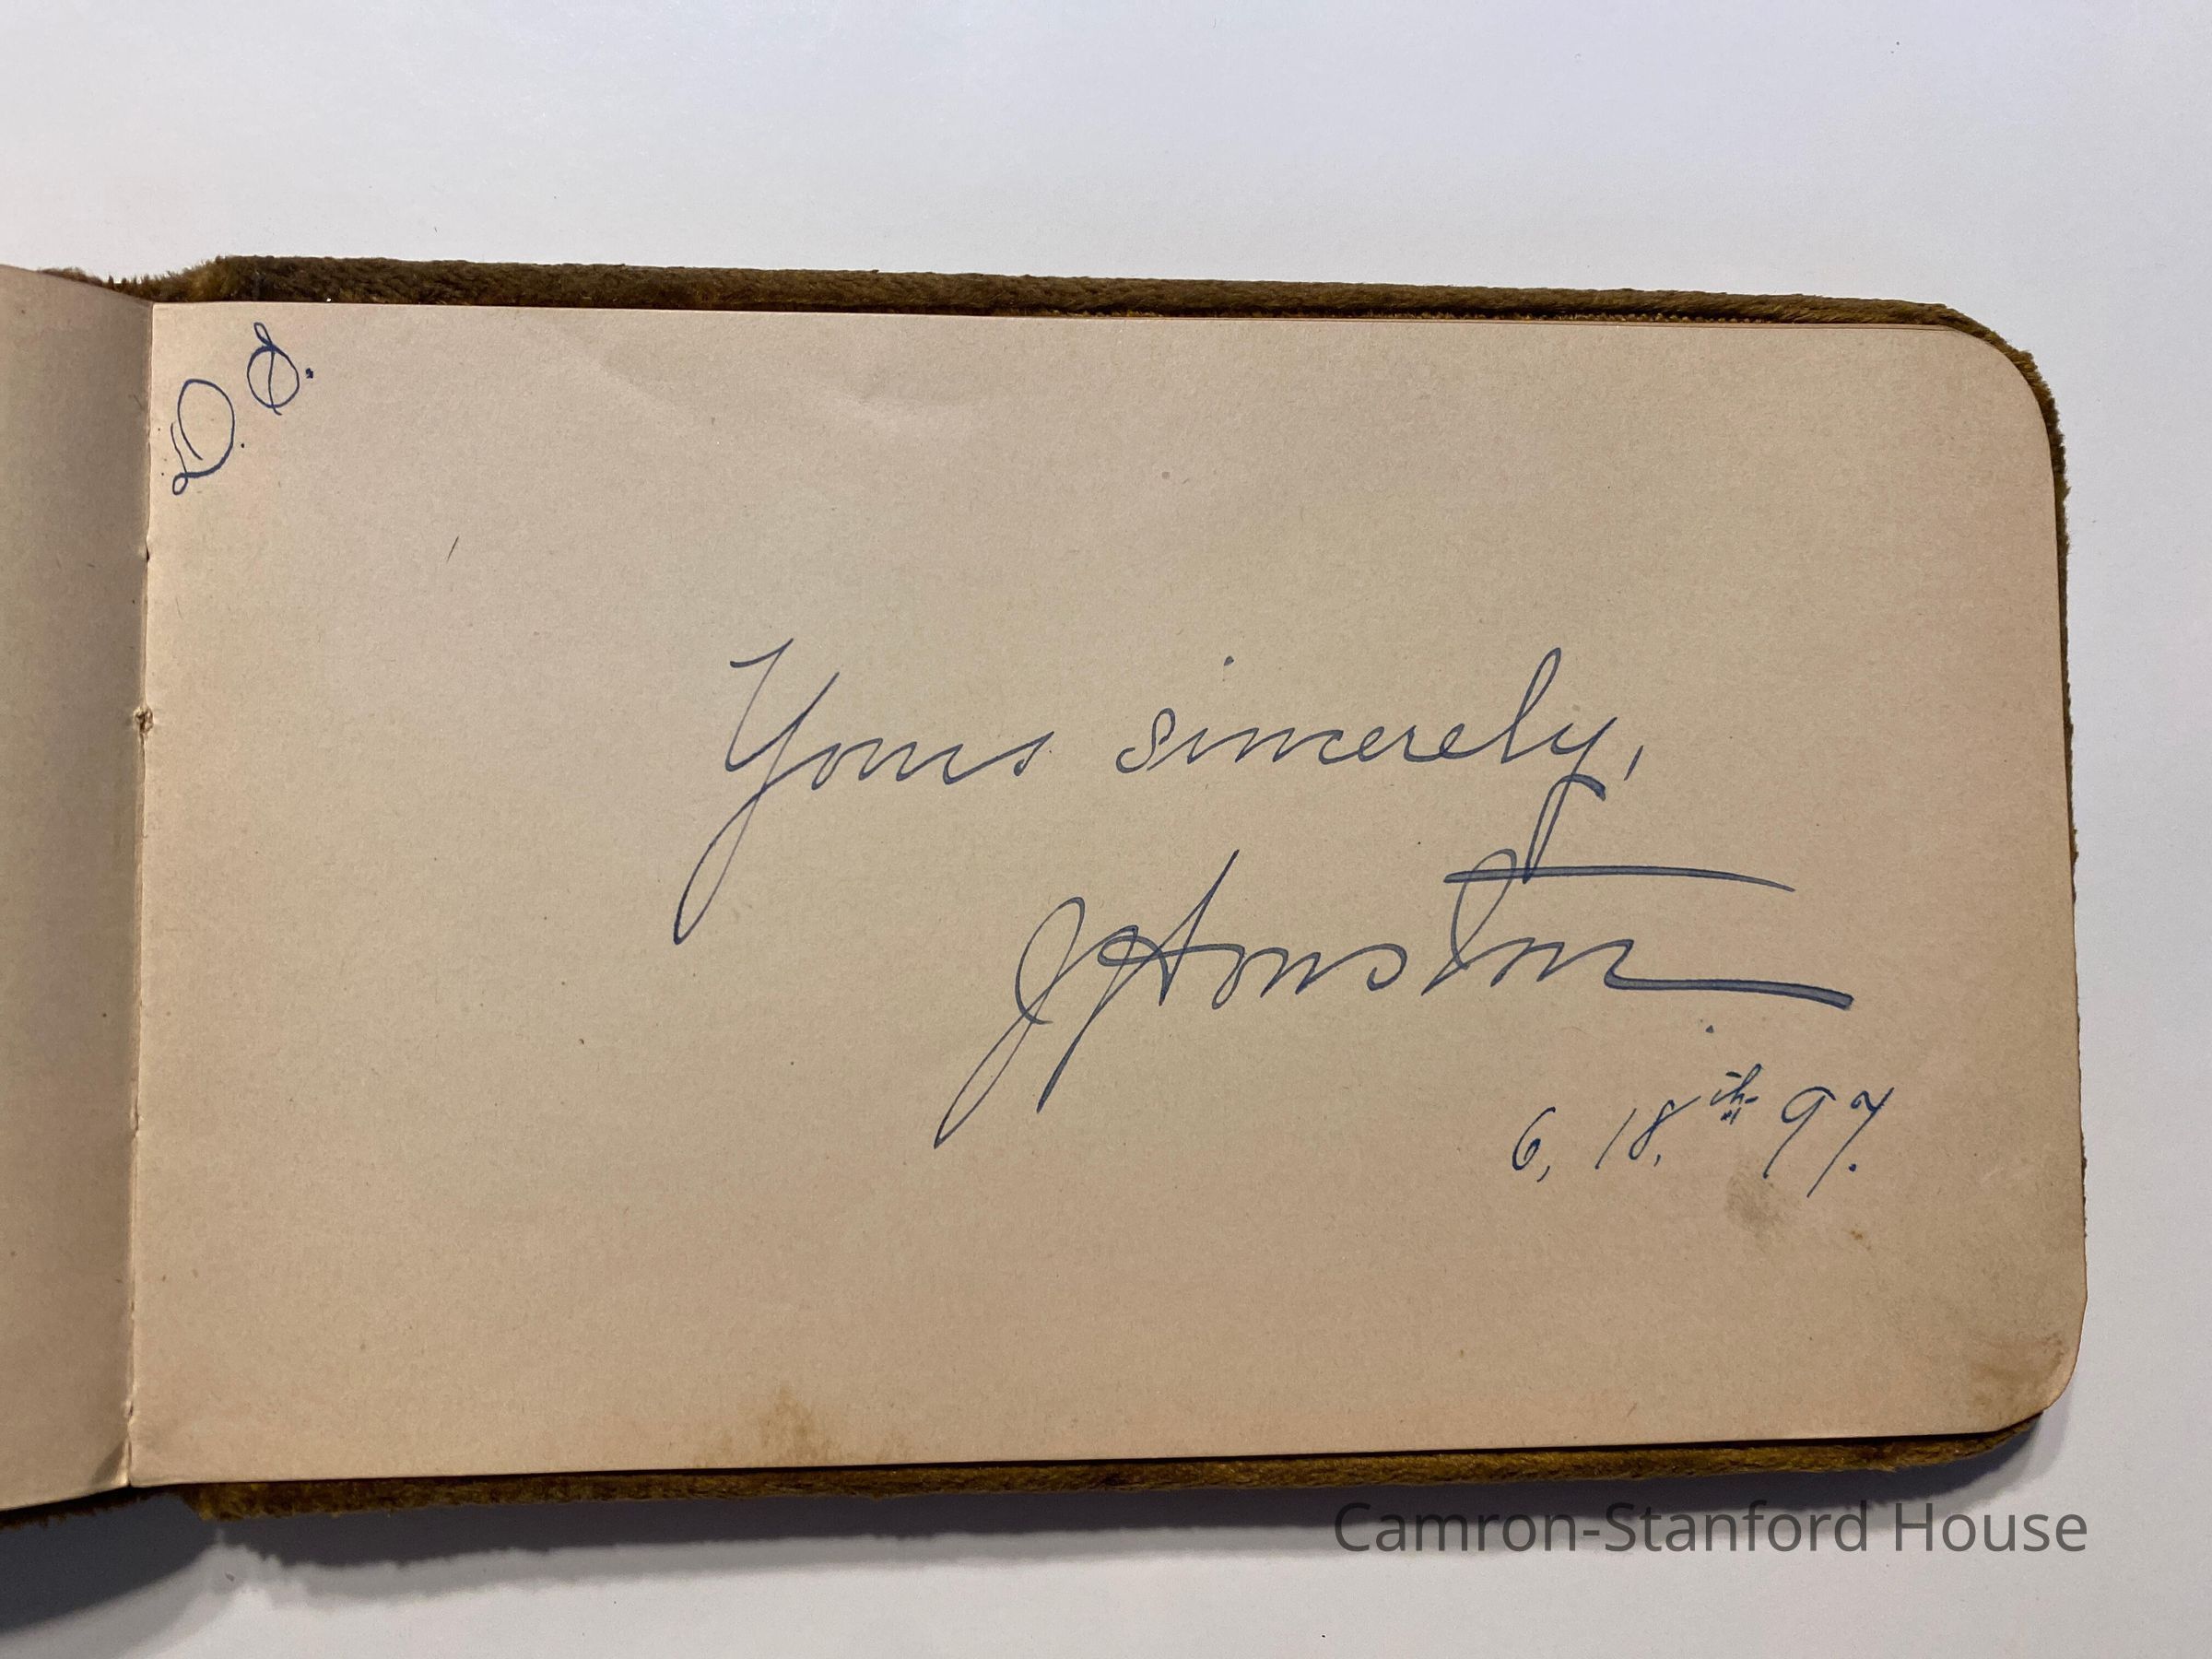 Yours sincerely,
J Houston
6, 18.th 97.
Camron-Stanford House